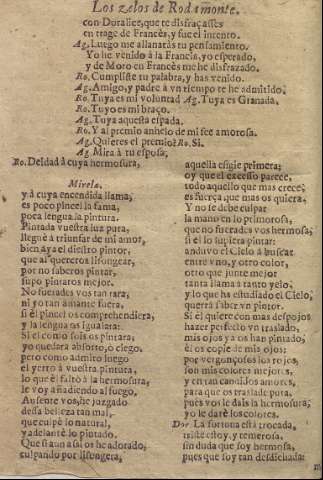 Los zelos de Rodamonte.
con Doralice, que te disfraçasses
en trage de Francès, y fue el intento.
Ag. Luego me allanaràs tu pensamiento.
Yo he venido à la Francia, yo esperado,
y de Moro en Francès me he disfrazado.
Ro. Cumpliste tu palabra, y has venido.
Ag. Amigo, y padre à vn tiempo te he admitido.
Ro. Tuya es mi voluntad Ag. Tuya es Granada.
Ro. Tuyo es mi braço.
Ag. Tuya aquesta espada.
Ro. Y al premio anhelo de mi fee amorosa.
Ag. Quieres el premio? Ro. Si.
Ag. Mira à tu esposa.
Ro. Deidad à cuya hermosura,
Mirela.
y à cuya encendida llama,
es poco pincel la fama,
poca lengua la pintura.
Pintada vuestra luz pura,
lleguè à triunfar de mi amor,
bien aya el diestro pintor,
que al quereros lisongear,
por no saberos pintar,
supo pintaros mejor.
No fuerades vos tan rara,
ni yo tan amante fuera,
si el pincel os comprehendiera,
y la lengua os igualara:
Si el como sois os pintara,
yo quedara absorto, ò ciego,
pero como admiro luego
el yerro à vuestra pintura,
lo que èl faltò à la hermosura,
te voy añadiendo al fuego,
Ausente vos, he juzgado
dessa belleza tan mal,
que culpè lo natural,
y adelantè lo pintado.
Que si aun assi os he adorado,
culpando por lisongera,
aquella efigie primera;
oy que el excesso parece,
todo aquello que mas crece,
es fuerça, que mas os quiera,
Y no se debe culpar
la mano en lo primoroso,
que no fuerades vos hermosa,
si èl lo supiera pintar:
anduvo el Cielo à buscar
entre vno, y otro color,
otro que junte mejor
tanta llama à tanto yelo,
y lo que ha estudiado el Cielo,
querrà saber vn pintor.
Si el quiere con mas despojos
hazer perfecto vn traslado,
mis ojos ya os han pintado,
èl os copie de mis ojos:
por vergonçosos los rojos,
son los colores mejores,
y en tan candidos amores,
para que os traslade pura,
pues vos le dais la hermosura,
yo le darè los colores.
Dor. La fortuna està trocada,
triste estoy, y temerosa,
sin duda que soy hermosa,
pues que soy tan desdichada: